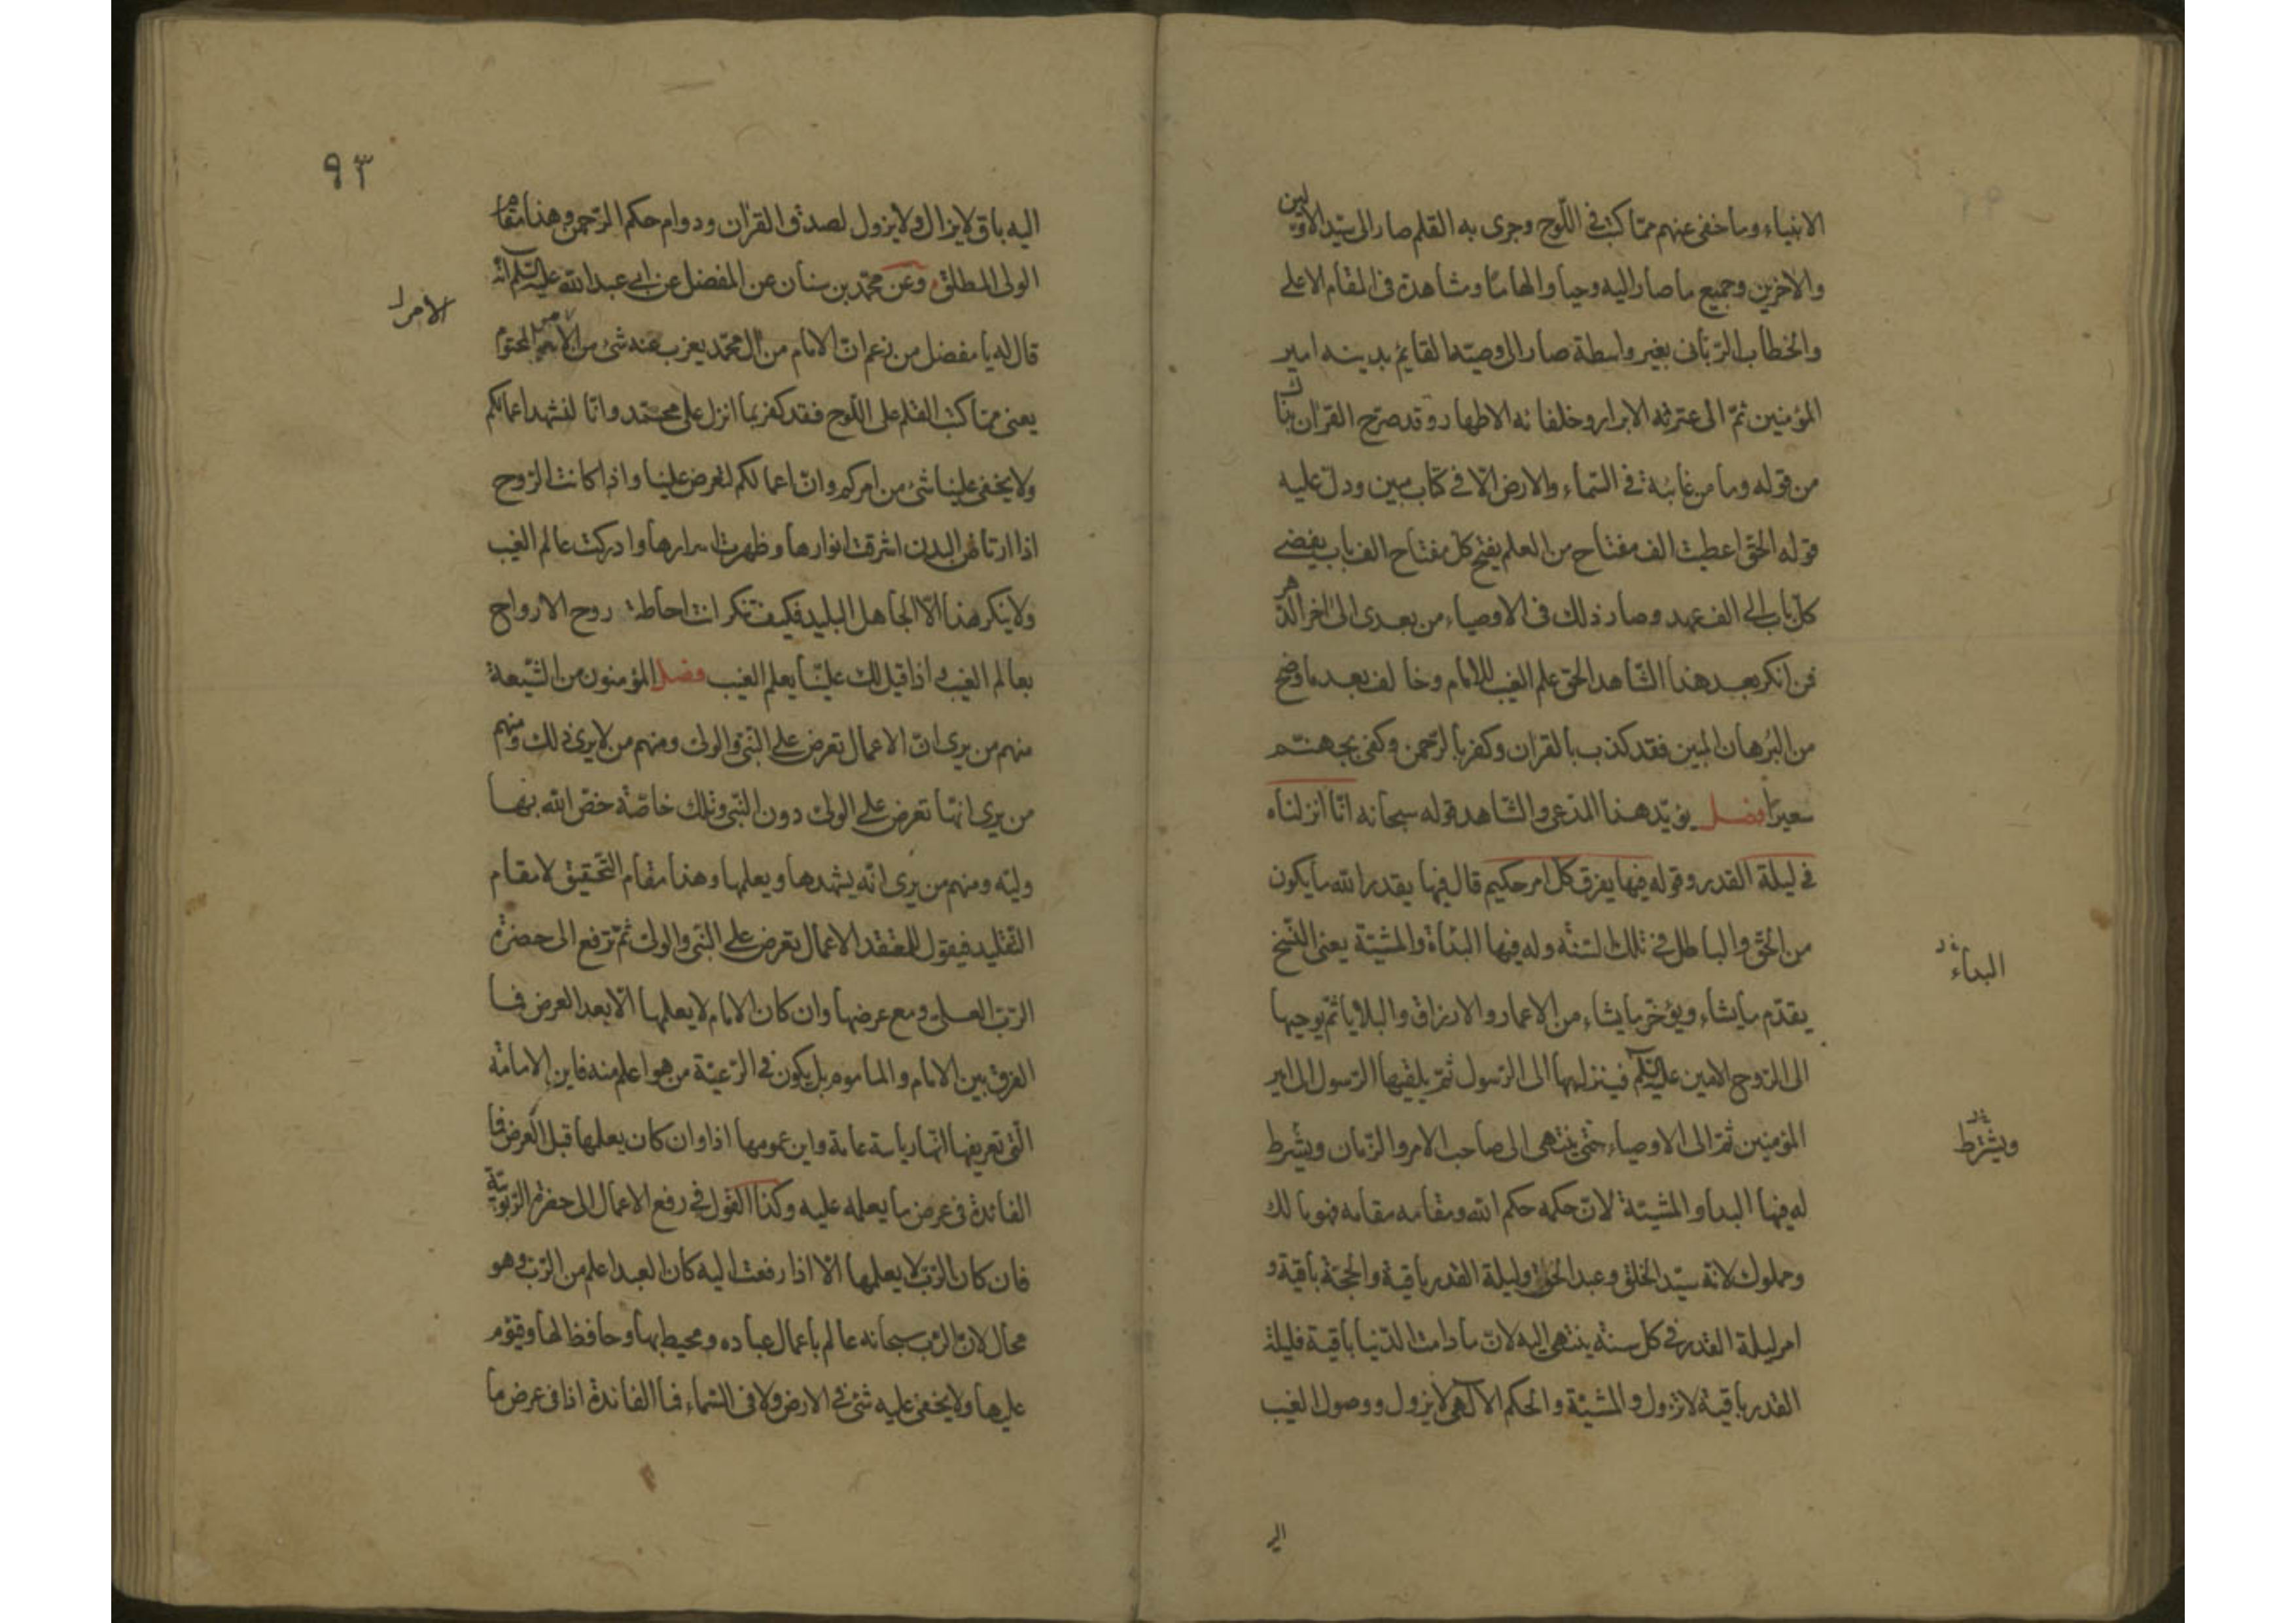 الانبياء وما خفي عنهم ممّا كتب في اللّوح وجرى به القلم صار الى سيّد الاوّلين
والاخرين وجميع ما صار اليه وحيا والهامًا ومشاهدة في المقام الاعلى
والخطاب الرّبّاني بغير واسطة صار الى وصيّه القايم بدينه امير
المؤمنين ثمّ الى عترته الابرار وخلفائه الاطهار وقد صرّح القران بذلك
من قوله وما من غايبة في السّماء والارض الّا في كتاب مبين ودلّ عليه
قوله الحقّ اعطيت الف مفتاح من العلم يفتح كلّ مفتاح الف باب يفضي
كلّ باب الى الف عهد وصار ذلك في الاوصياء من بعدى الى اخر الدّهر
فمن انكر بعد هذا الشّاهد الحقّ علم الغيب للامام وخالف بعد ما وضح
من البرهان المبين فقد كذب بالقران وكفر بالرّحمن وكفى بجهنّم
سعيرًا فصل يؤيّد هذا المدّعى والشّاهد قوله سبحانه انّا انزلناه
في ليلة القدر وقوله فيها يفرق كلّ امر حكيم قال فيها يقدر الله ما يكون
من الحقّ والباطل في تلك السّنة وله فيها البداة والمشيّة يعنى النّسخ
البداء
يقدّم ما يشاء ويؤخّر ما يشاء من الاعمار والارزاق والبلايا ثمّ يوحيها
الى الرّوح الامين عليه السّلم فينزلها الى الرّسول ثمّ يلقيها الرّسول الى امير
المؤمنين ثمّ الى الاوصياء حتّى ينتهى الى صاحب الامر والزّمان ويشرط
ويشترط
له فيها البدا والمشيّة لانّ حكمه حكم الله ومقامه مقامه فهو مالك
ومملوك لانّه سيّد الخلق وعبد الحقّ وليلة القدر باقية والحجّة باقية و
امر ليلة القدر في كل سنة ينتهى اليه لانّ ما دامت الدّنيا باقية فليلة
القدر باقية لا تزول والمشيّة والحكم الالهى لا يزول ووصول الغيب
الي
٩٣
اليه باق لا يزال ولا يزول لصدق القران ودوام حكم الرّحمن وهذا مقام
الولى المطلق وعن محمّد بن سنان عن المفضل عن ابي عبد الله عليه السّلم انّه
الأمر
قال له يا مفضل من زعم انّ الامام من ال محمّد يعزب عنه شئ من الامر المحتوم
يعنى ممّا كتب القلم على اللّوح فقد كفر بما انزل على محمّد وانّا لنشهد اعمالكم
ولا يخفى علينا شئ من امركم وانّ اعمالكم لتعرض علينا واذا كانت الرّوح
اذا ارتاض البدن اشرقت انوارها وظهرت اسرارها وادركت عالم الغيب
ولا ينكر هذا الّا الجاهل البليد فكيف تنكر انت احاطة روح الارواح
بعالم الغيب اذا قيل لك عليًّا يعلم الغيب فصل المؤمنون من الشّيعة
منهم من يرى انّ الاعمال تعرض على النّبي والولى ومنهم من لا يرى ذلك ومنهم
من يرى انّها تعرض على الولى دون النّبي وتلك خاصّة خصّ الله بها
وليّه ومنهم من يرى انّه يشهدها ويعلمها وهذا مقام التّحقيق لا مقام
التّقليد فيقول المعتقد الاعمال تعرض على النّبي والولى ثمّ ترفع الى حضرة
الرّبّ العلىّ ومع عرضها وان كان الامام لا يعلمها الّا بعد العرض فما
الفرق بين الامام والماموم بل يكون في الرّعيّة من هو اعلم منه فاين الامامة
الّتي تعريفها انّها رياسة عامة واين عمومها اذا وان كان يعلمها قبل العرض فما
الفائدة في عرض ما يعلمه عليه وكذا القول في رفع الاعمال الى حضرة الرّبوبيّة
فان كان الرّبّ لا يعلمها الّا اذا رفعت اليه كان العبد اعلم من الرّبّ وهو
محال لانّ الرّبّ سبحانه عالم باعمال عباده ومحيط بها وحافظ لها وقيّوم
عليها ولا يخفى عليه شئ في الارض ولا فى السّماء فما الفائدة اذا في عرض ما